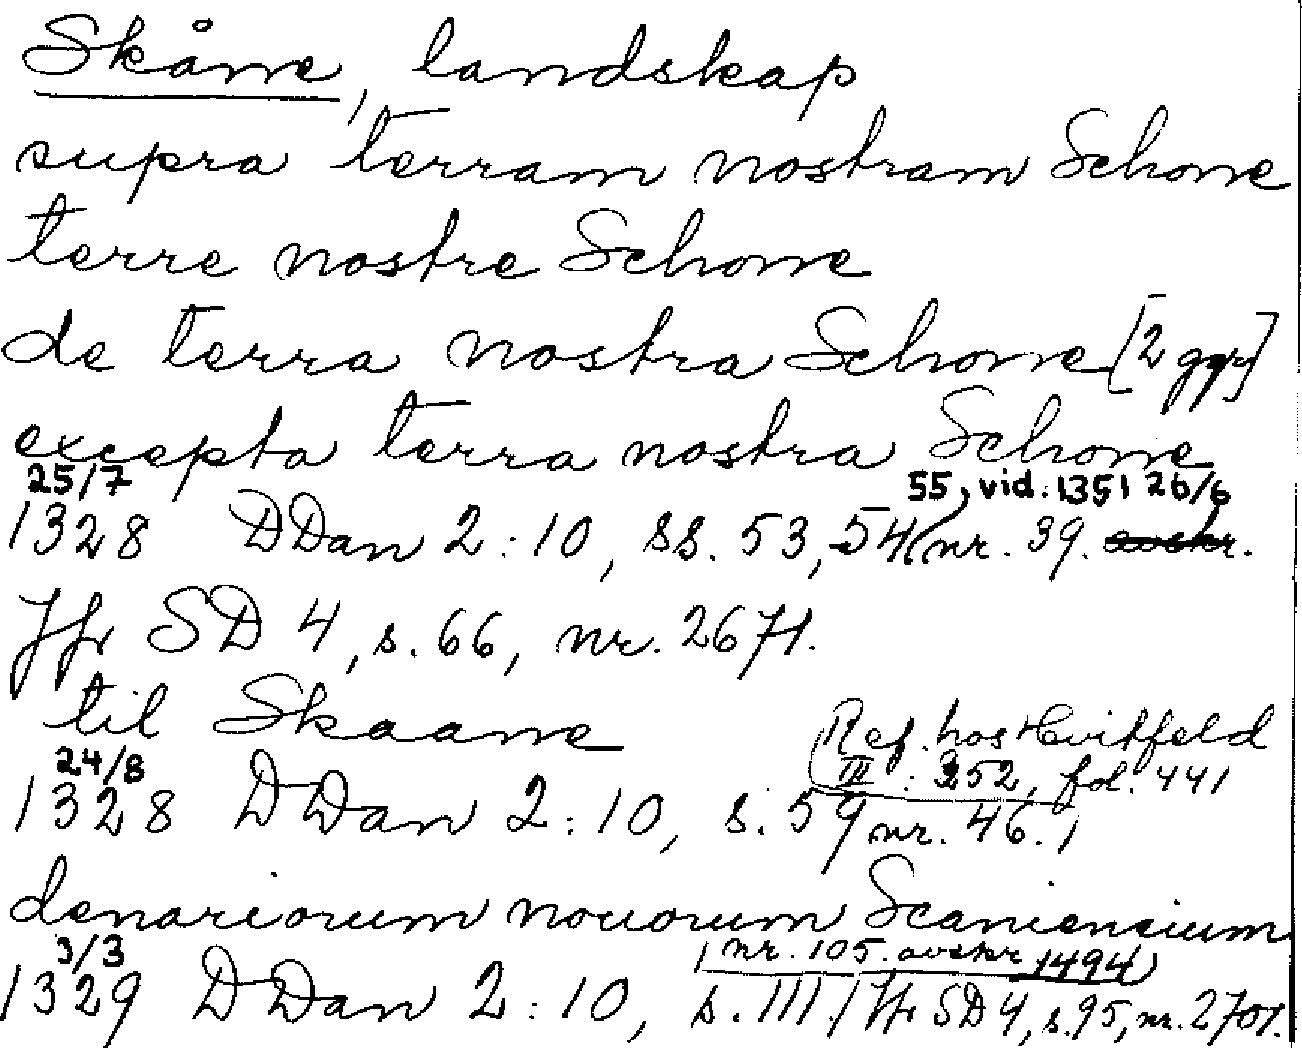 Skåne, landskap
supra terram nostram Schone
terre nostre Schone
de terra nostra Schone [2 ggr]
excepta terra nostra Schone
25/7 55, vid. 1351 26/6
1328 DDan 2:10, ss. 53, 54 (nr. 39. avskr.
Jfr SD 4, s. 66, nr. 2671.
til Skaane
Ref. hos Hvitfeld
24/8 III : 352, fol. 441
1328 DDan 2:10, s. 59 nr. 46.)
denariorum nouorum Scaniensium
3/3 (nr. 105. avskr 1494)
1329 DDan 2:10, s. 111. / Jfr SD 4, s. 95, nr. 2701.